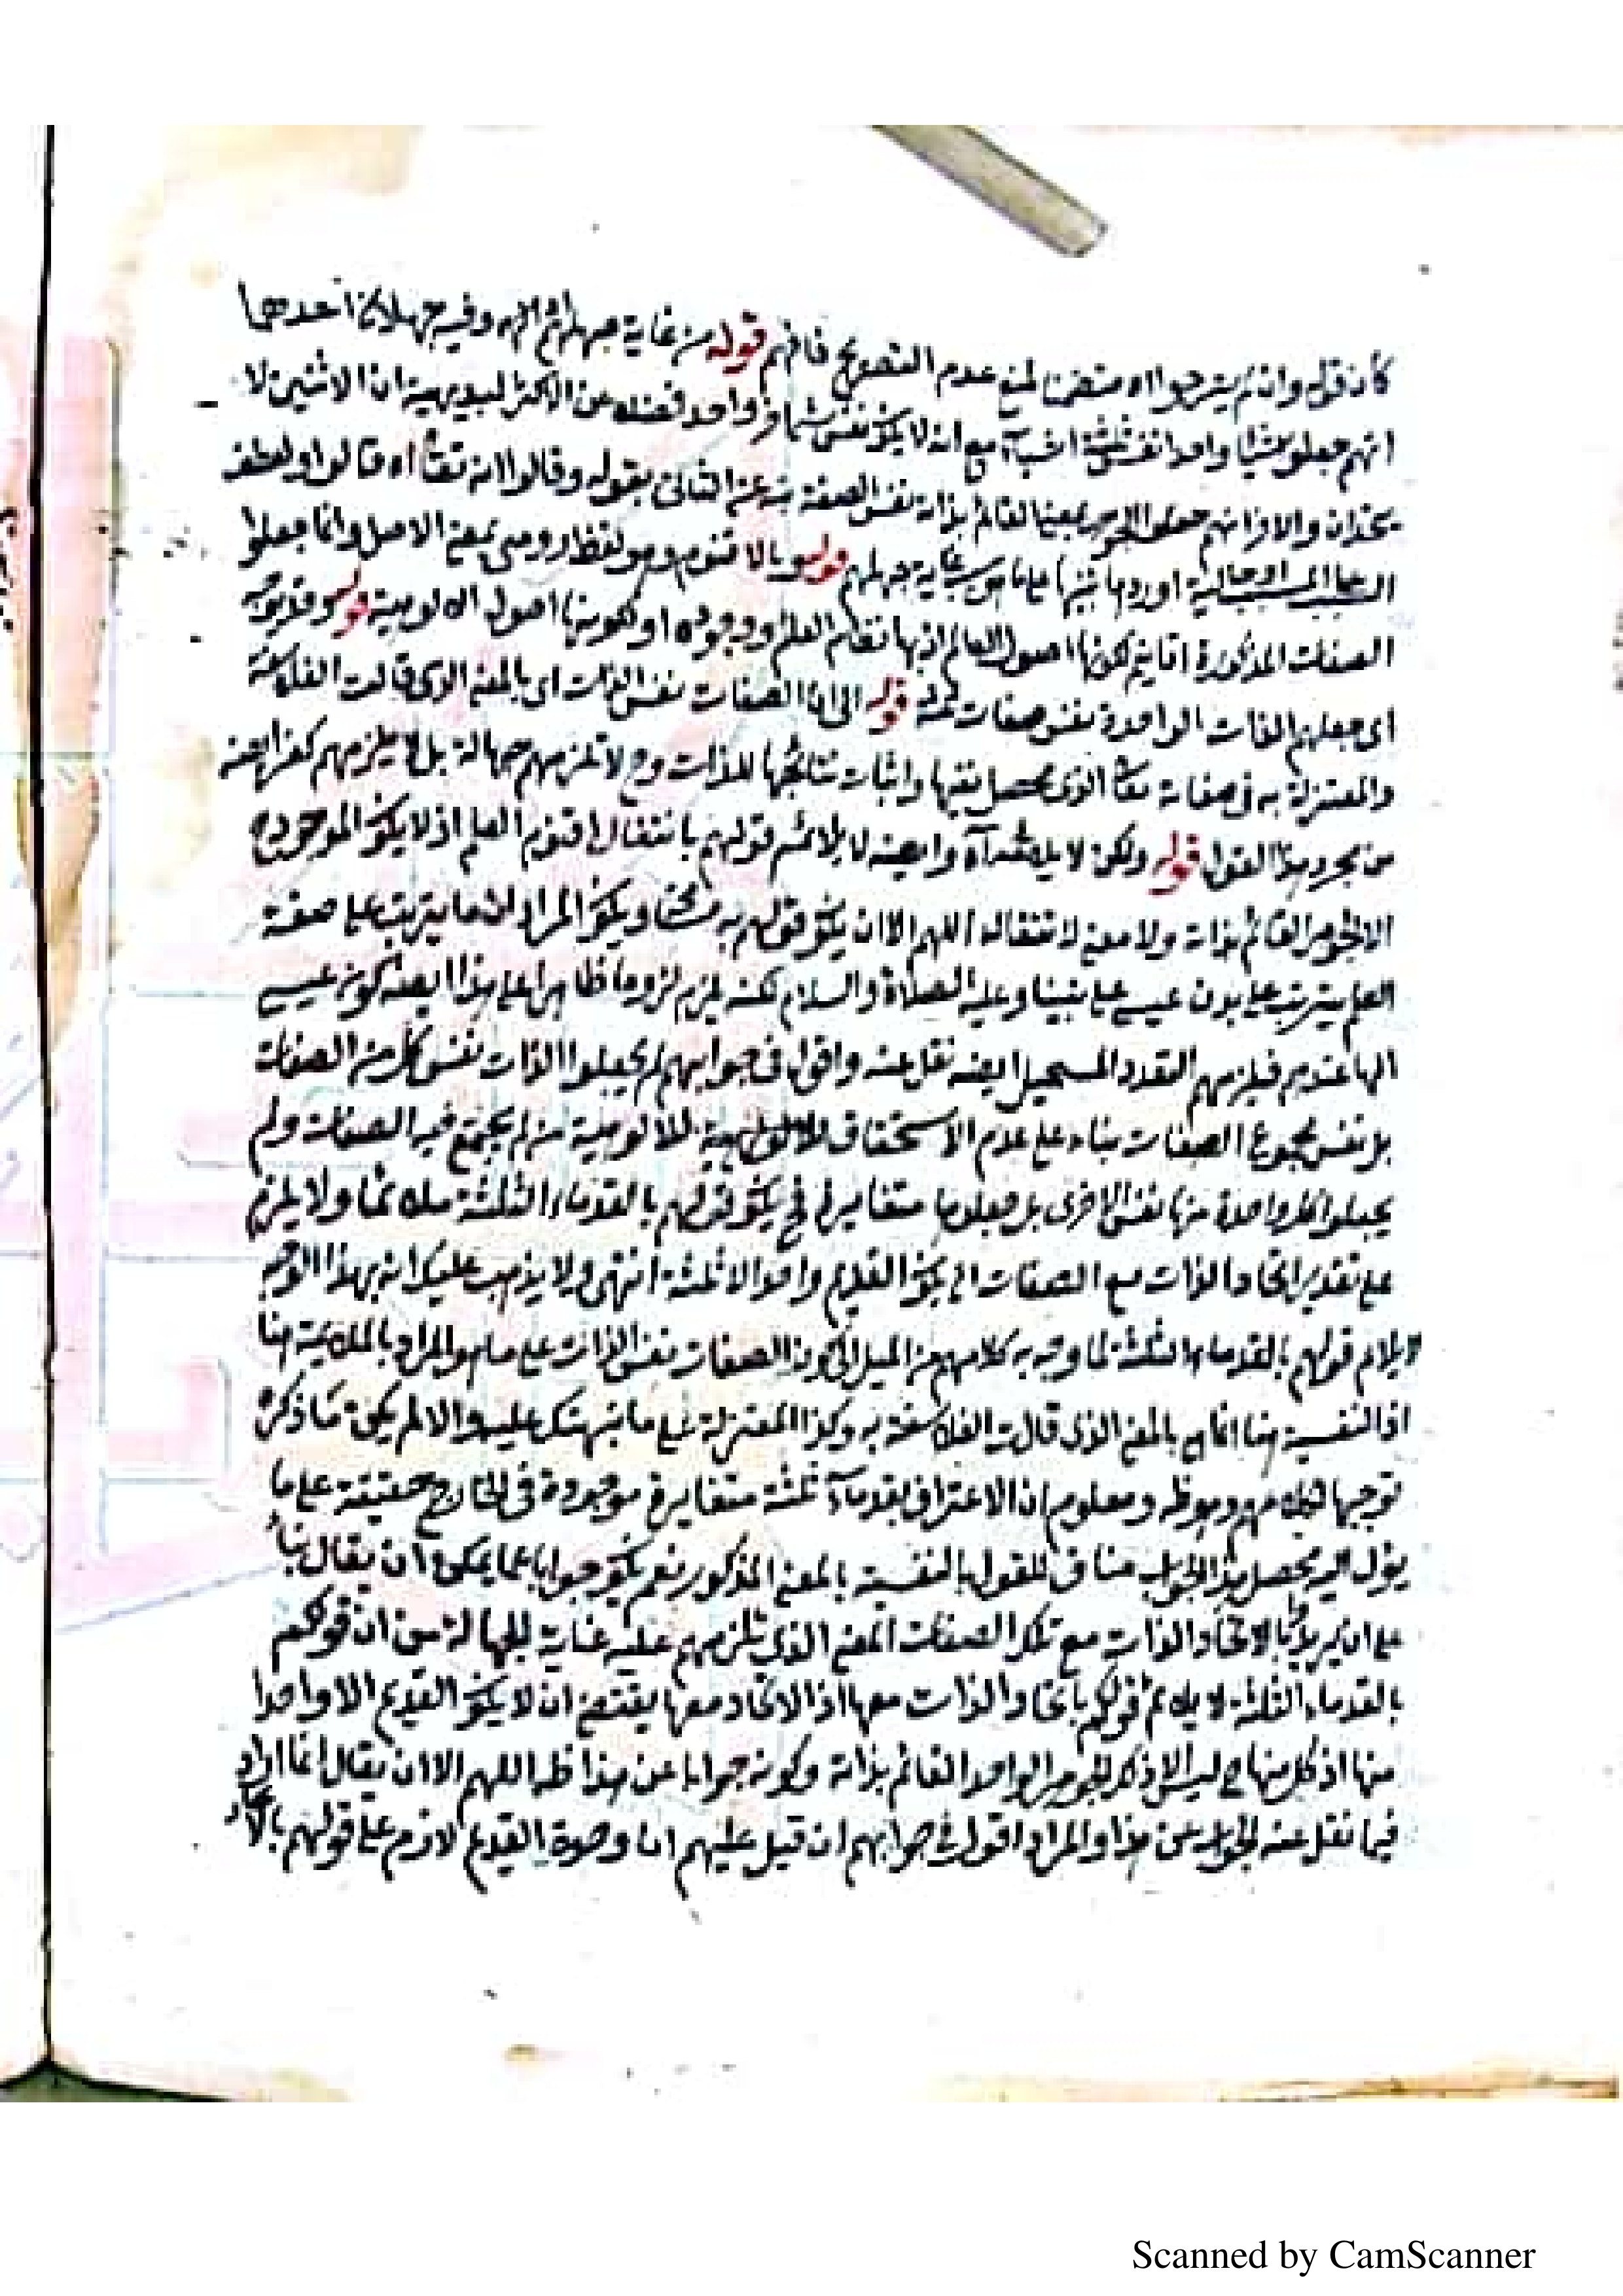 كان قوله وان لم يتر حوا اه متضمنا لمنع عدم التصريح فافهم قوله من غاية جهلهم الخ وفيه جهلان احدهما
انهم جعلوا شيأ واحدا نفس ثلثة اشيآء مع انه لا يكون نفس شئ واحد فضلا عن الاكثر لبديهية ان الاثنين لا
يتحدان والاخر انهم جعلوا الجوهر بمعنى القائم بذاته نفس الصفة نبه على الثانى بقوله وقالوا انه تعالى اه قالوا ولفظ
اوردها على ما هو غاية جهلهم قوله بالاقنوم وهو لفظ رومى بمعنى الاصل وانما جعلوا
الصفات المذكورة اقانيم لكونها اصول العالم اذ بها نظام العالم ووجوده او لكونها اصول الالوهية قوله وقد يوجه
اى جعلهم الذات الواحدة نفس صفات ثلثة قوله الى ان الصفات نفس الذات اى بالمعنى الذى قالت الفلاسفة
والمعتزلة به فى صفاته تعالى الذى محصل نفيها واثبات نتائجها للذات وح لا تلزمهم جهالة بل لا يلزمهم كفر ايضه
من مجرد هذا القول قوله ولكن لا يلائمه آه وايضه لا يلائم قولهم بانتقال اقنوم العلم اذ لا يكون الموجود ح
الا الجوهر القائم بذاته ولا معنى لانتقاله اللهم الا ان يكون قولهم به ويكون المراد ان ما يترتب على صفة
العلم يترتب على بدن عيسى على نبينا وعليه الصلاة والسلام لكنه يلزم لزوما ظاهرا على هذا ايضه كون عيسى
الها عندهم فيلزمهم التعدد المستحيل ايضه نقل عنه واقول فى جوابهم لم يجعلوا الذات نفس كل من الصفات
بل نفس مجموع الصفات بناء على عدم الاستحقاق للالوهية من لم يجتمع فيه الصفات ولم
يجعلوا كل واحدة منها نفس الاخرى بل جعلوها متغايرة فح يكون قولهم بالقدماء الثلثة ملائما ولا يلزم
على تقدير اتحاد الذات مع الصفات ان يكون القديم واحدا لا ثلثة انتهى ولا يذهب عليك انه بهذا الوجه
لا يلائم قولهم بالقدماء الثلثة لما وجه به كلامهم من الميل الى كون الصفات نفس الذات على ما هو المراد بالملائمة هنا
اذ النفسية هنا انما هى بالمعنى الذى قالت الفلاسفة به وكذا المعتزلة على ما نبهتك عليه والا لم يكن ما ذكره
توجيها وهو ظ ومعلوم ان الاعتراف بقدمآء ثلثة متغايرة موجودة فى الخارج حقيقة على ما
يؤل اليه محصل هذا الجواب مناف للقول بالنفسية بالمعنى المذكور نعم يكون جوابا عما يمكن ان يقال بناء
على ان يريدوا بالاتحاد الذات مع تلك الصفات المعنى الذى تلزمهم عليه غاية الجهالة من ان قولكم
بالقدماء الثلثة لا يلائم قولكم باتحاد الذات معها اذ الاتحاد معها يقتضى ان لا يكون القديم الا واحدا
منها اذ كل منها ح ليس الا ذلك الجوهر الواحد القائم بذاته وكونه جوابا عن هذا ظ اللهم الا ان يقال انما اراد
فيما نقل عنه الجواب عن هذا والمراد اقول فى جوابهم ان قيل عليهم ان وحدة القديم لازم على قولهم بالاتحاد
Scanned by CamScanner